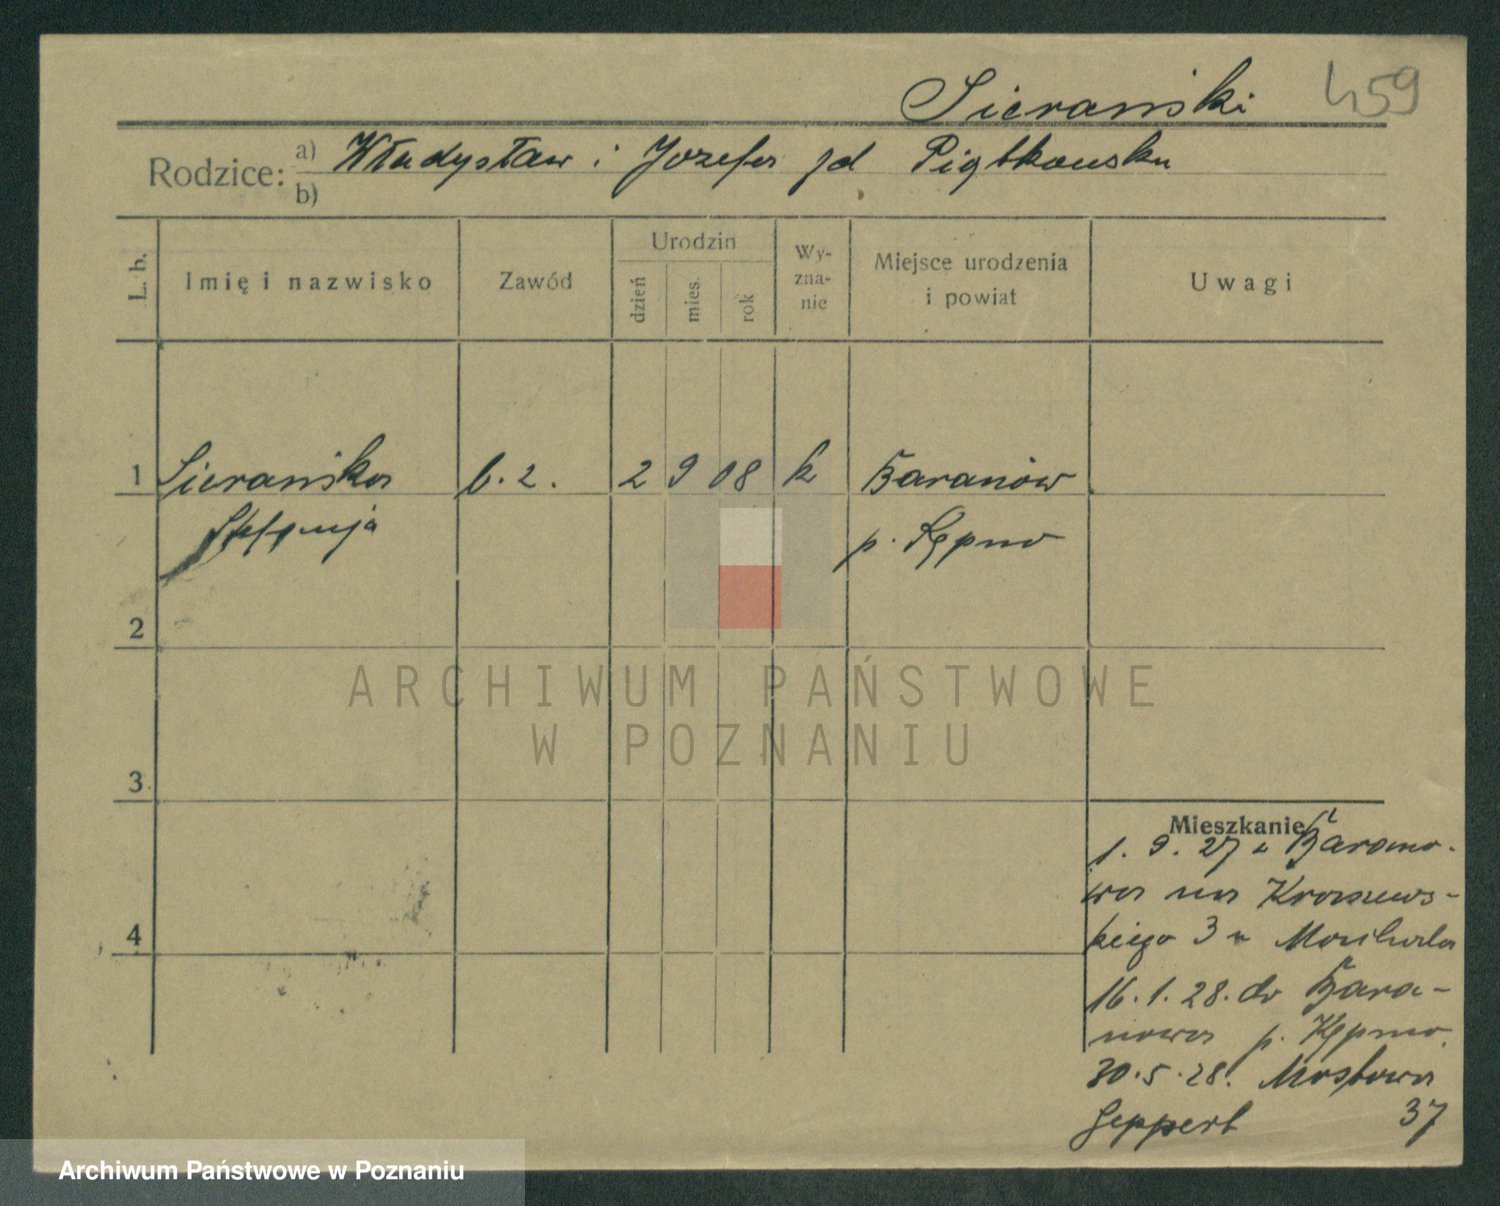 Sierański 459
Rodzice: a) Władysław i Józefa zd Piątkowska
b)
L. b. Imię i nazwisko Zawód Urodzin dzień mies. rok Wy-zna-nie Miejsce urodzenia i powiat Uwagi
1 Sierańska b. z. 2 9 08 k Baranów
Stefanja p. Kępno
2
ARCHIWUM PAŃSTWOWE
W POZNANIU
3
Mieszkanie
1. 9. 27 z Barano-
wa na Kraszews-
4 kiego 3 u
16. 1. 28. do Bara-
nowa p. Kępno.
30. 5. 28. Mostowa
Geppert 37
Archiwum Państwowe w Poznaniu